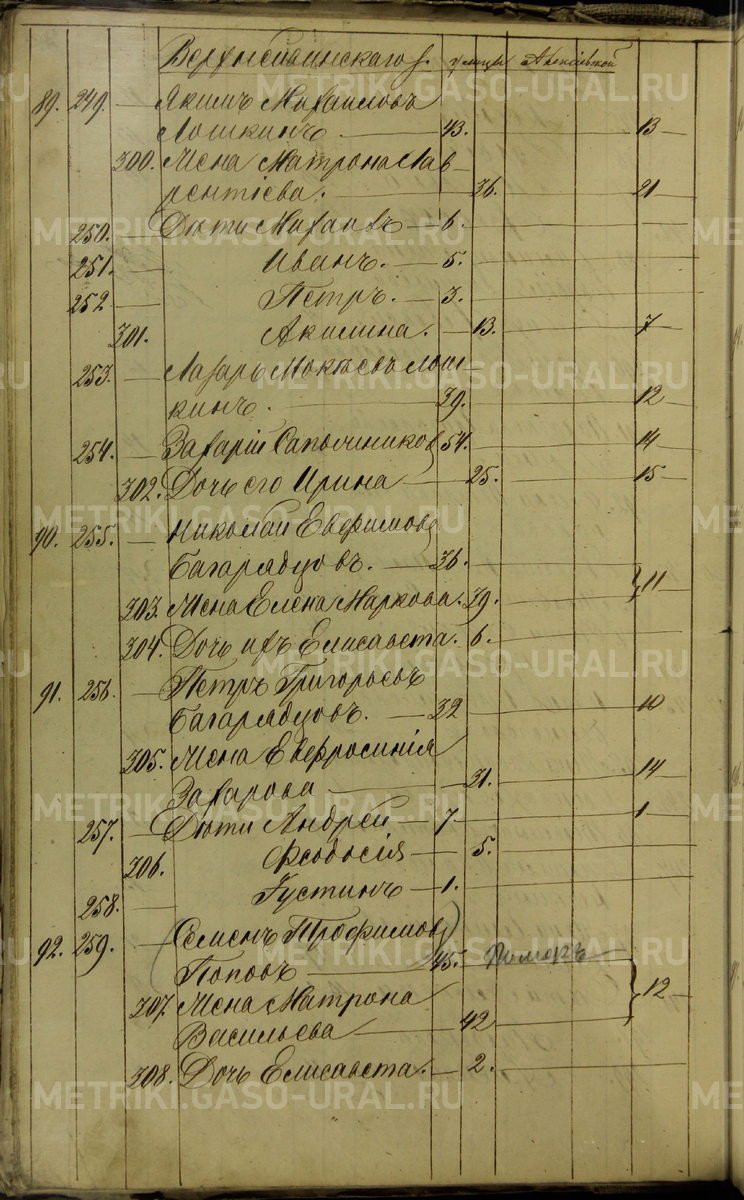 Верхнейвинскаго з. улицы Алексѣевской
89. 249. — Якимъ Михайловъ
Лошкинъ. — 43. — 13
300. Жена Матрона Лав-
рентіева. — 36. — 21
250. — Дѣти Михаилъ — 6.
251. — Иванъ. — 5.
252 — Петръ. — 3.
301. Акилина. — 13. — 7
253. — Лазарь Мокѣевъ Лош-
кинъ. — 39. — 12
254. — Захарій Сапожниковъ 54. — 14
302. Дочь его Ирина — 25. — 15
90. 255. — Николай Евфимовъ
Багарядцовъ. — 36.
303. Жена Елена Маркова. 39. } 11
304. Дочь ихъ Елисавета. 6.
91. 256. — Петръ Григорьевъ
Багарядцовъ. — 32 — 10
305. Жена Евфросинія
Захарова — 31. — 14
257. — Дѣти Андрей — 7. — 1
306. Феодосія — 5.
258. — Густинъ — 1.
92. 259. — (Семенъ Трофимовъ)
Поповъ — 45. Померъ
307. Жена Матрона } 12
Васильева — 42
308. Дочь Елисавета. — 2.
METRIKI.GASO-URAL.RU